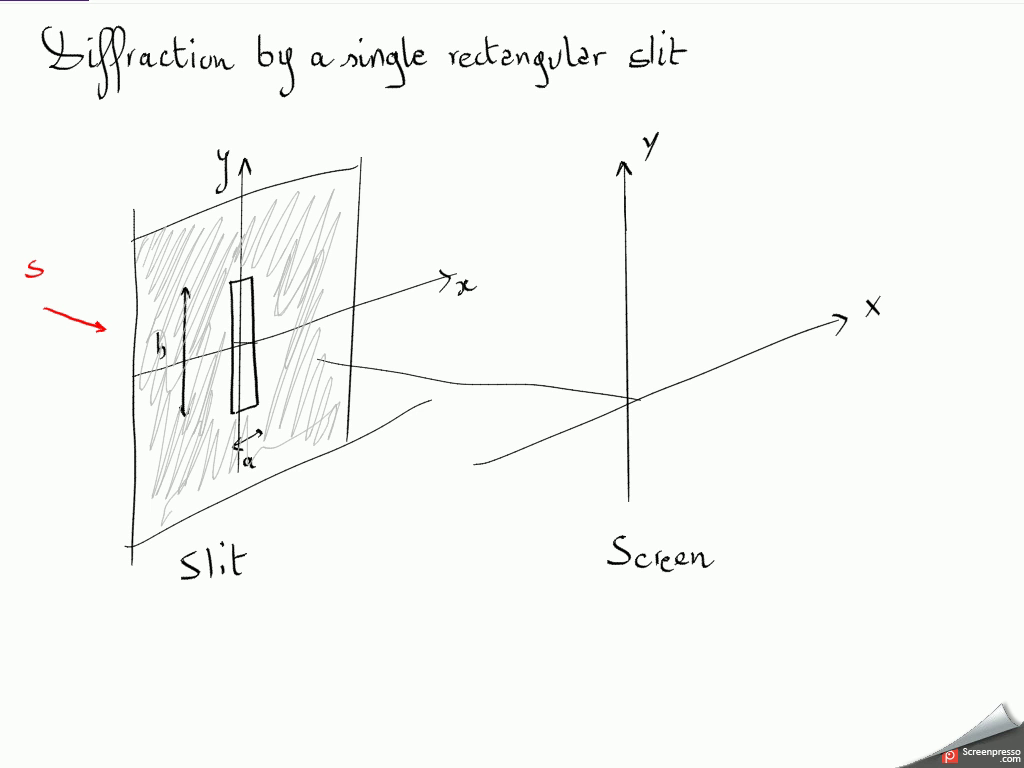 Diffraction by a single rectangular slit
y
Y
S
x
X
b
a
Slit
Screen
Screenpresso
.com